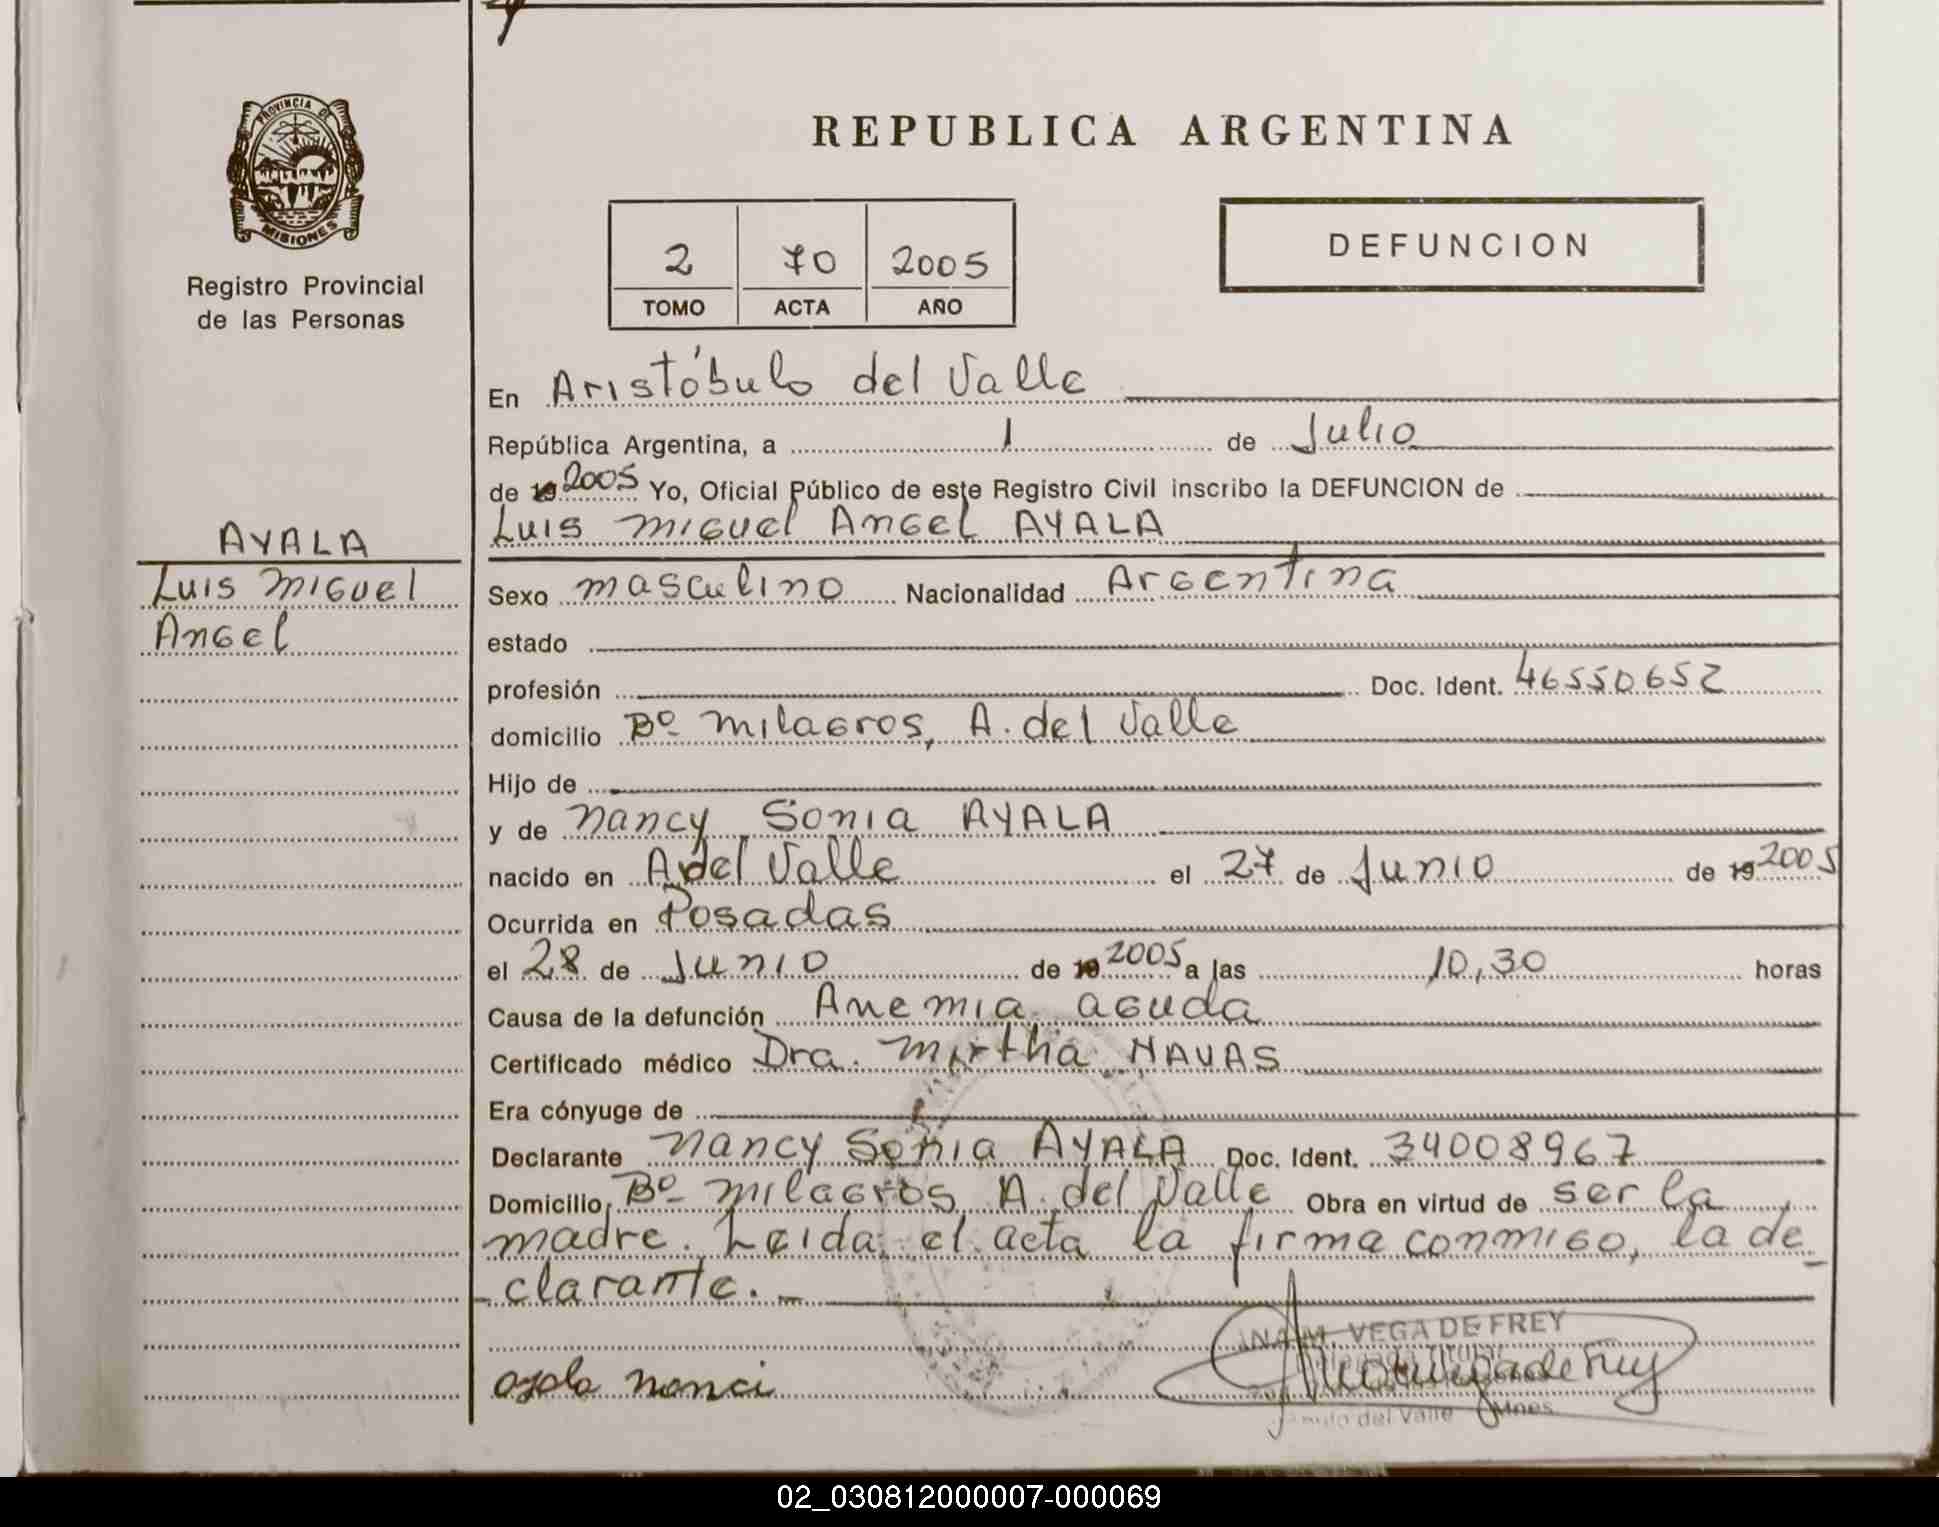 PROVINCIA DE
MISIONES
Registro Provincial
de las Personas
AYALA
Luis Miguel
Angel
REPUBLICA ARGENTINA
2 70 2005
TOMO ACTA AÑO
DEFUNCION
En Aristóbulo del Valle
República Argentina, a 1 de Julio
de 19 2005 Yo, Oficial Público de este Registro Civil inscribo la DEFUNCION de
Luis Miguel Angel AYALA
Sexo masculino Nacionalidad Argentina
estado
profesión Doc. Ident. 46550652
domicilio Bº Milagros, A. del Valle
Hijo de
y de Nancy Sonia AYALA
nacido en A del Valle el 27 de Junio de 19 2005
Ocurrida en Posadas
el 28 de Junio de 19 2005 a las 10,30 horas
Causa de la defunción Anemia aguda
Certificado médico Dra. Mirtha NAVAS
Era cónyuge de
Declarante Nancy Sonia AYALA Doc. Ident. 34008967
Domicilio Bº Milagros A. del Valle Obra en virtud de ser la
madre. Leida el acta la firma conmigo, la de
clarante.
VEGA DE FREY
ayala nanci
del Valle Mnes
02_030812000007-000069